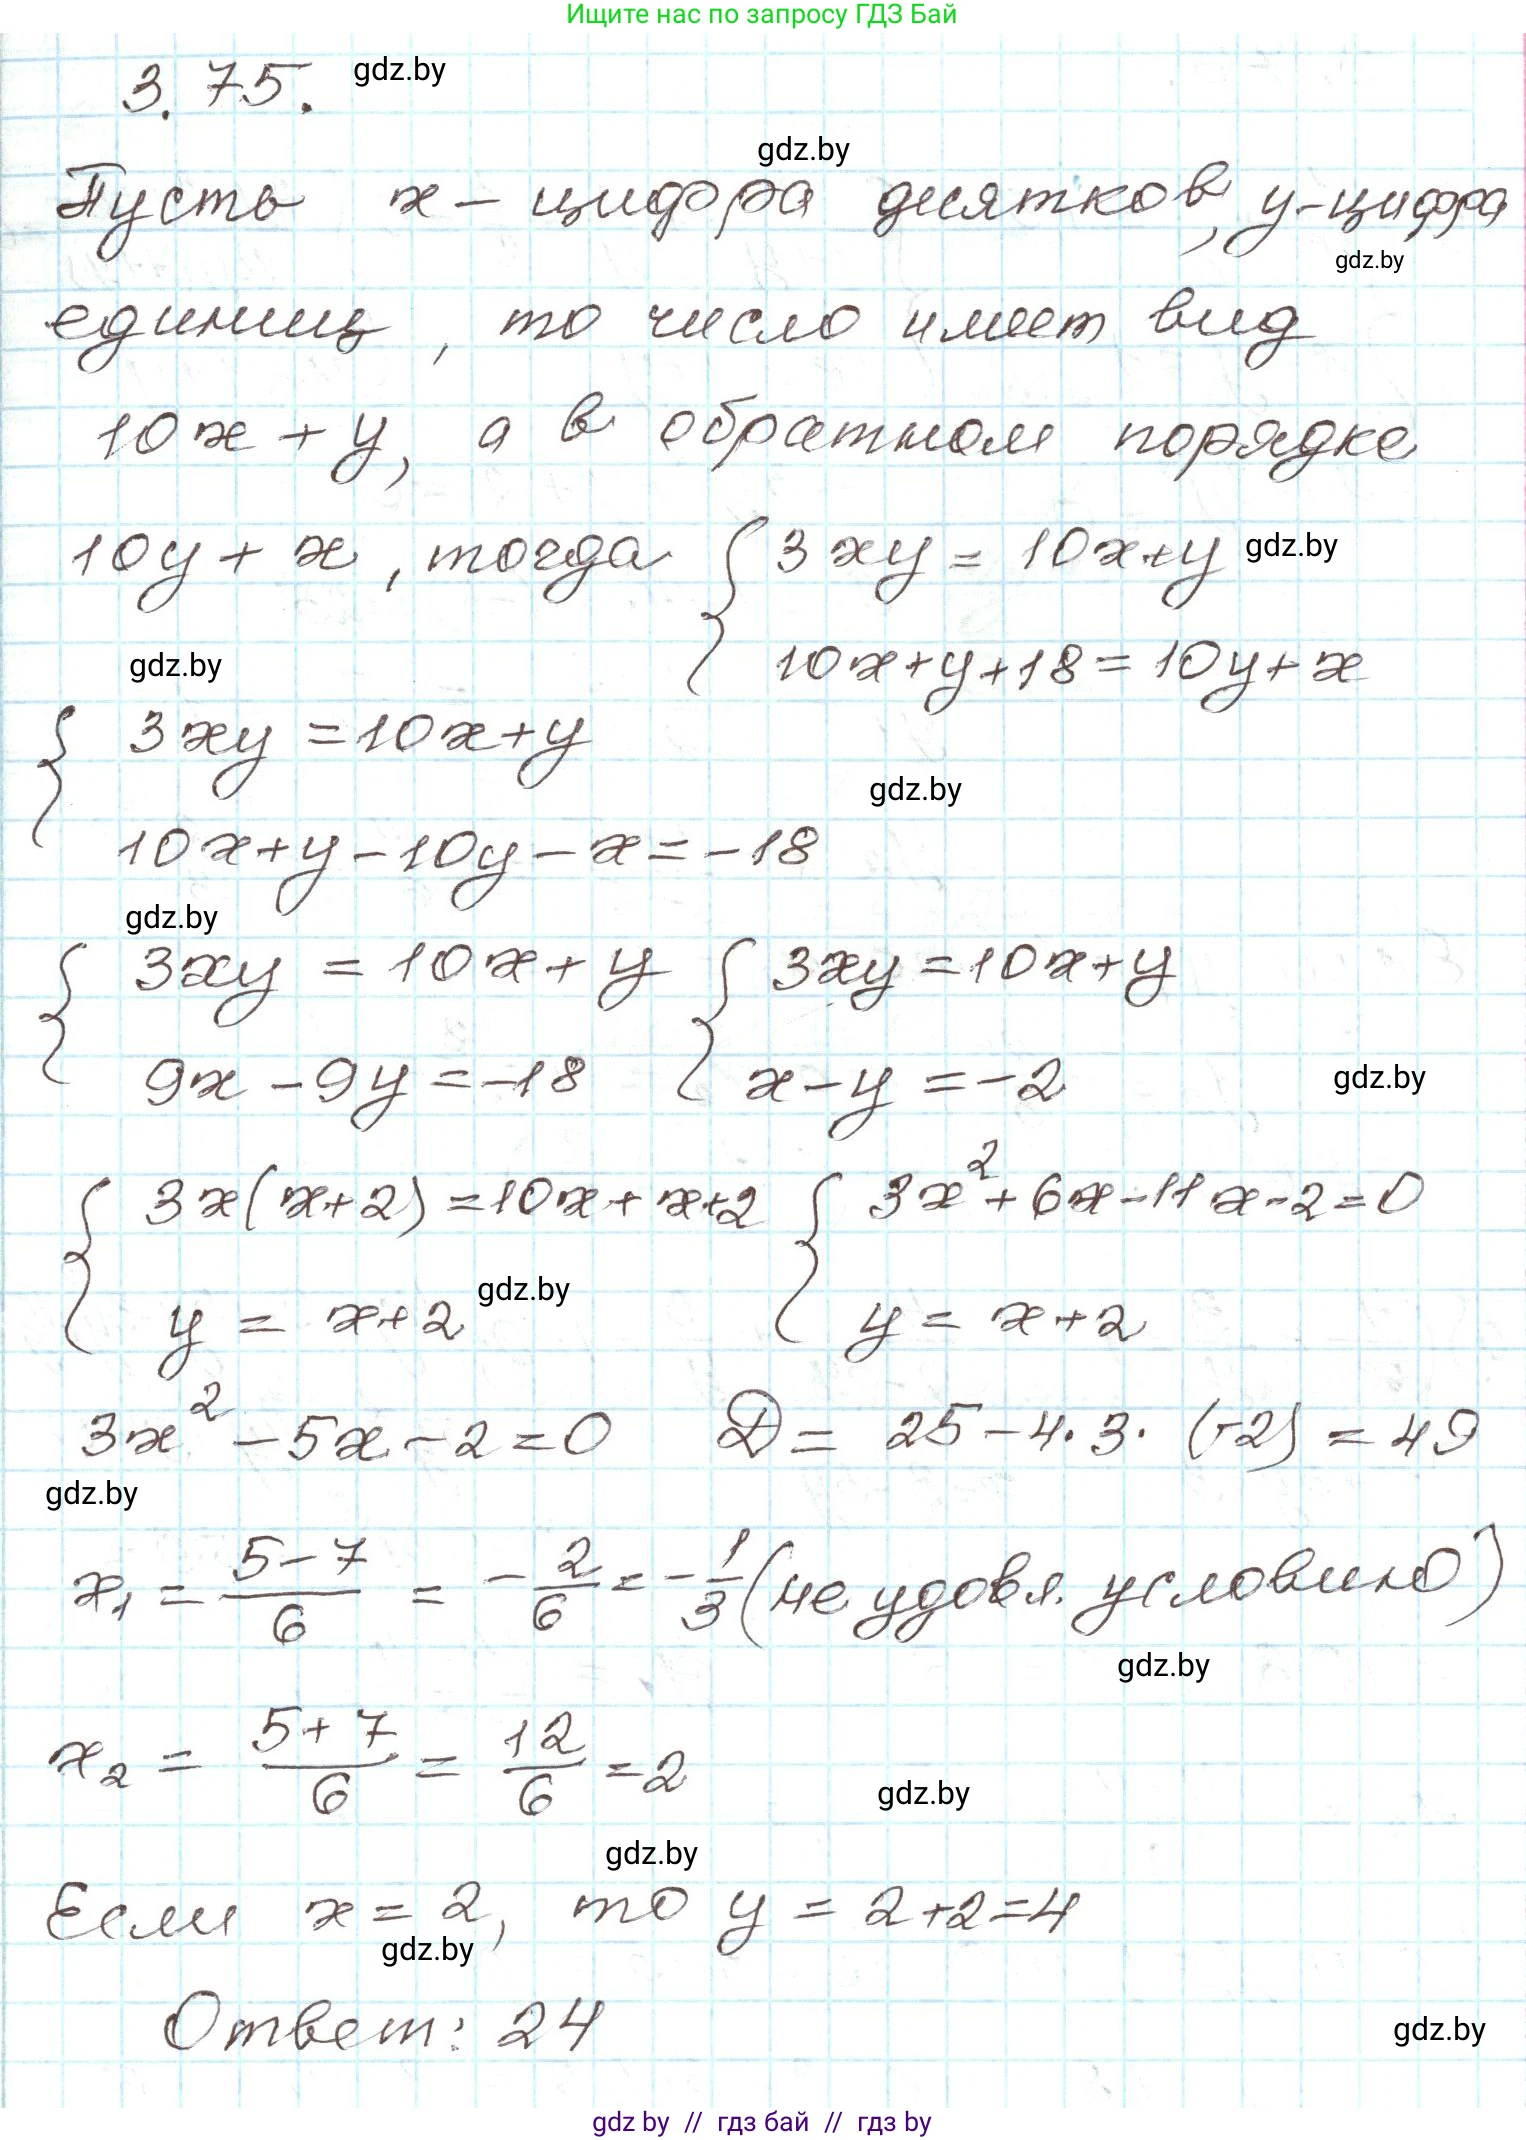 Ищите нас по запросу ГДЗ Бай
3.75. gdz.by
gdz.by
Пусть x - цифра десятков, y - цифра
gdz.by
единиц, то число имеет вид
10x + y, а в обратном порядке
10y + x, тогда { 3xy = 10x+y gdz.by
10x+y+18 = 10y+x
gdz.by
{ 3xy = 10x+y
gdz.by
10x+y-10y-x = -18
gdz.by
{ 3xy = 10x+y { 3xy = 10x+y
9x - 9y = -18 x - y = -2 gdz.by
{ 3x(x+2) = 10x+x+2 { 3x²+6x-11x-2=0
y = x+2 gdz.by y = x+2
3x² - 5x - 2 = 0 D = 25 - 4·3·(-2) = 49
gdz.by
x₁ = (5-7)/6 = -2/6 = -1/3 (не удовл. условию)
gdz.by
x₂ = (5+7)/6 = 12/6 = 2
gdz.by
gdz.by
Если x = 2, то y = 2+2=4
gdz.by
Ответ: 24
gdz.by
gdz by // гдз бай // гдз by